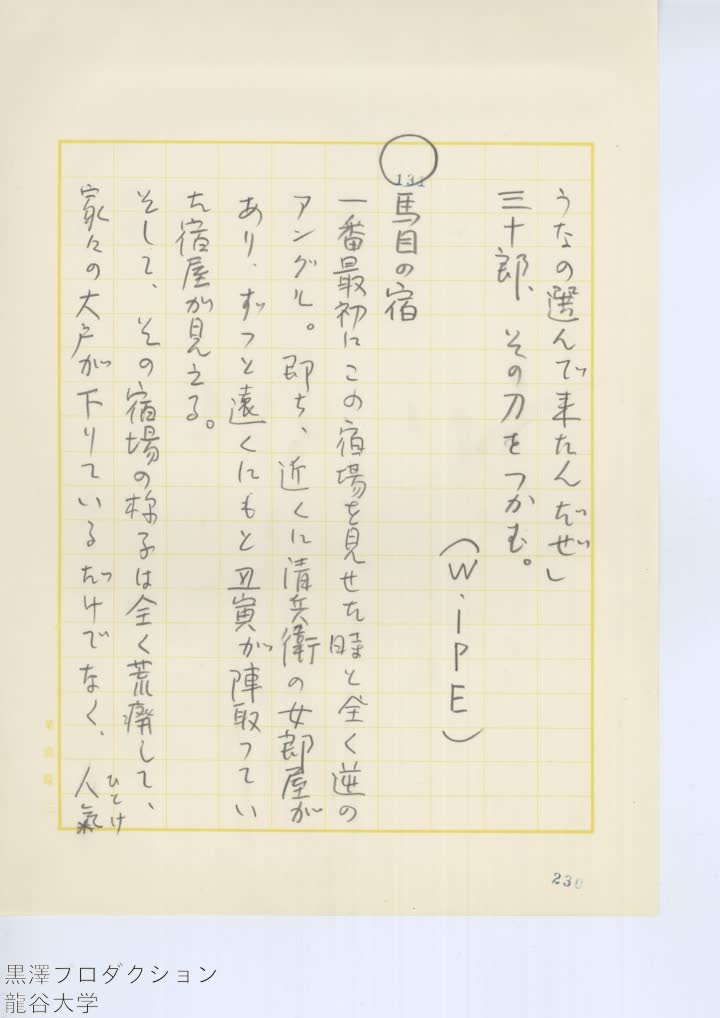 うなの選んで来たんだぜ」
三十郎、その刀をつかむ。
（W・iPE）
131
馬目の宿
一番最初にこの宿場を見せた時と全く逆の
アングル。即ち、近くに清兵衛の女郎屋が
あり、ずっと遠くにもと丑寅が陣取ってい
た宿屋が見える。
そして、その宿場の様子は全く荒廃して、
家々の大戸が下りているだけでなく、人氣
ひとけ
230
黒澤プロダクション
龍谷大学